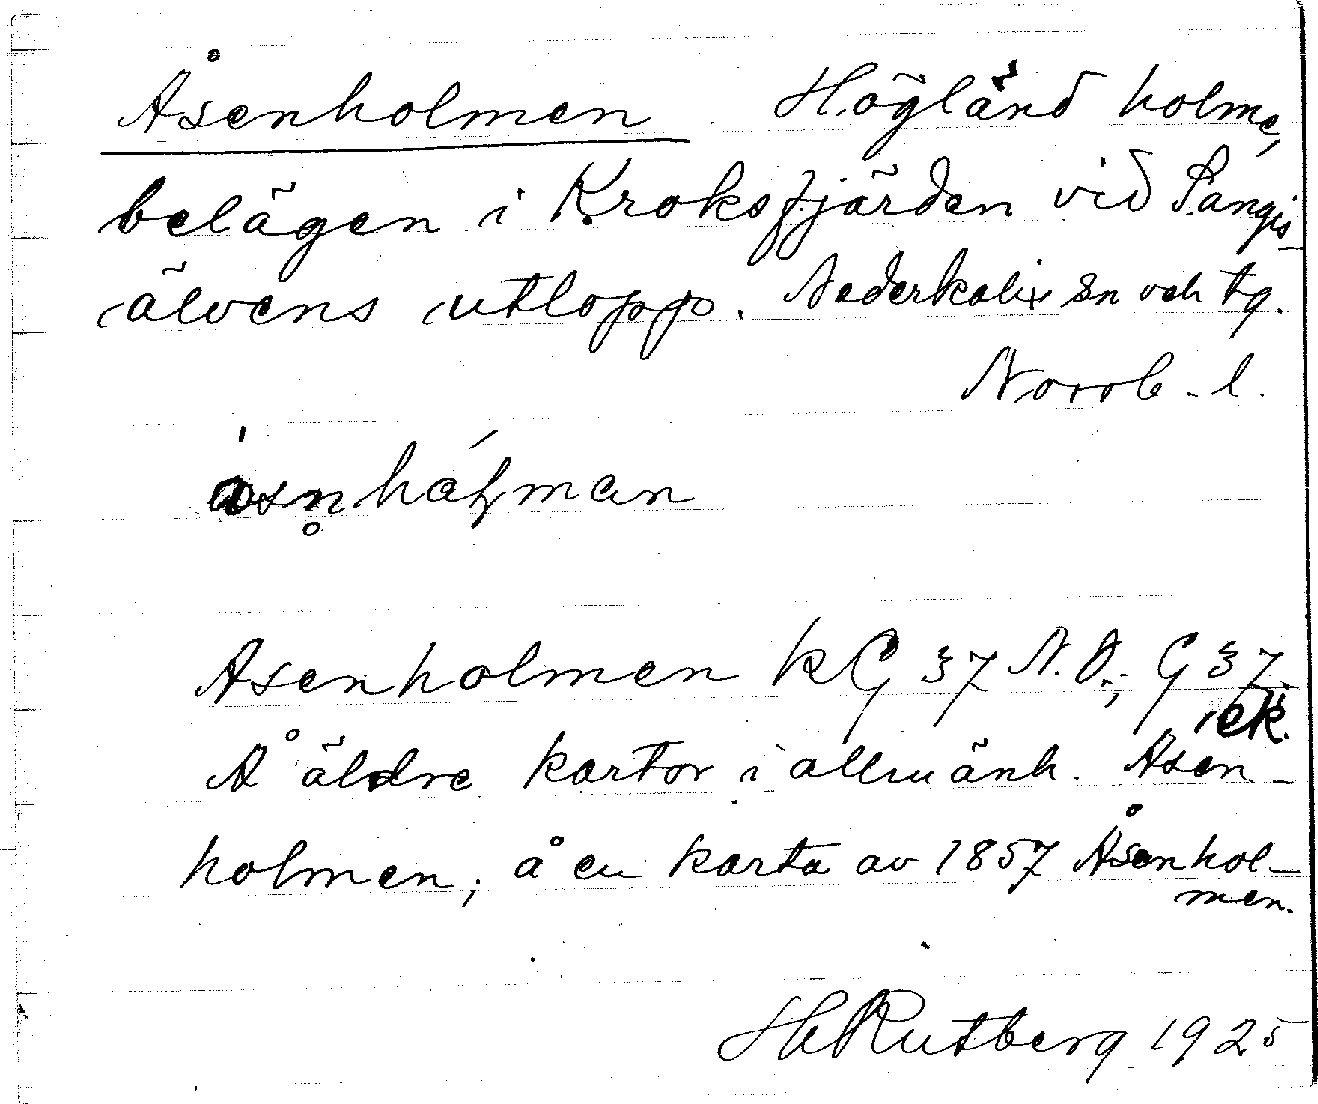 Åsenholmen Högländ holme,
belägen i Kroksfjärden vid Sangis-
älvens utlopp. Nederkalix sn och tg.
Norrb. l.
Asenholmen kG 37 N.O.; G 37. ek.
Å äldre kartor i allmänh. Asen-
holmen, å en karta av 1857 Åsenhol-
men.
H Rutberg 1925